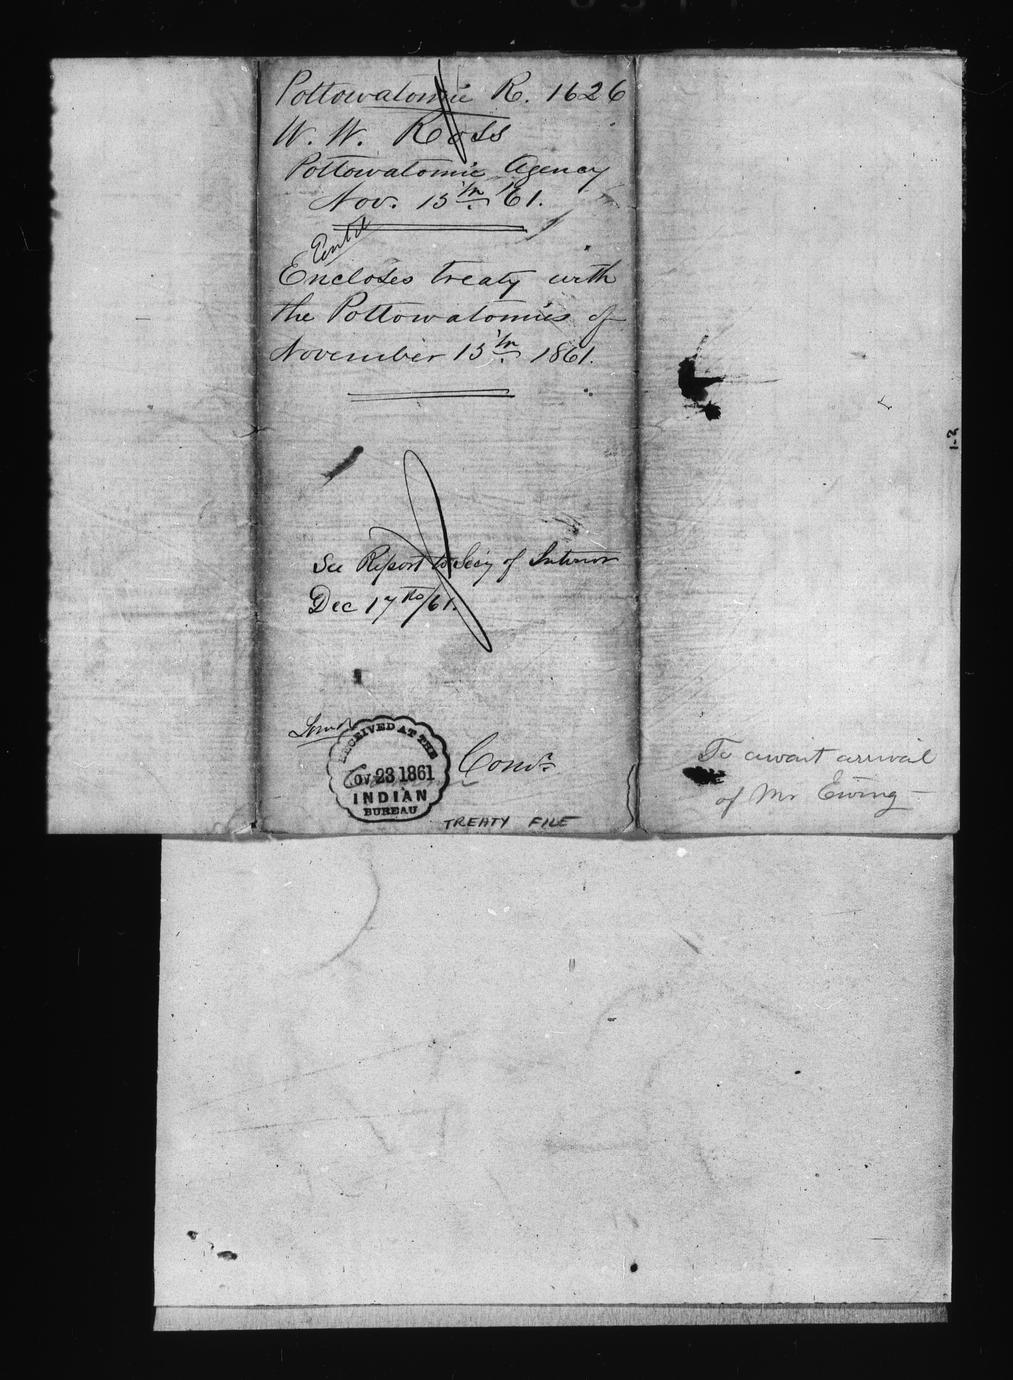 Pottowatomie R. 1626
W. W. Ross
Pottowatomie Agency
Nov. 15th '61.
Encloses treaty with
the Pottowatomies of
November 15th 1861.
See Report to Secy of Interior
Dec 17th/61.
RECEIVED AT THE
NOV 23 1861
INDIAN
BUREAU
TREATY FILE
To await arrival
of Mr Ewing —
1-2